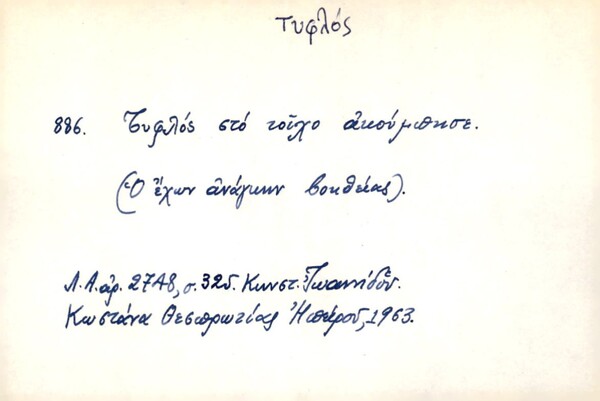 Τυφλός
886. Τυφλός στό τοῖχο ἀκούμπησε.
(Ὁ ἔχων ἀνάγκην βοηθείας).
Λ.Α. ἀρ. 2748, σ. 325. Κωνστ. Ἰωαννίδου.
Κωστάνα Θεσπρωτίας Ἠπείρου, 1963.